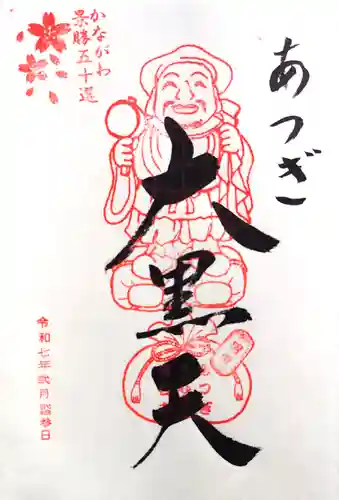 あつぎ
大黒天
かながわ
景勝五十選
令和七年弐月